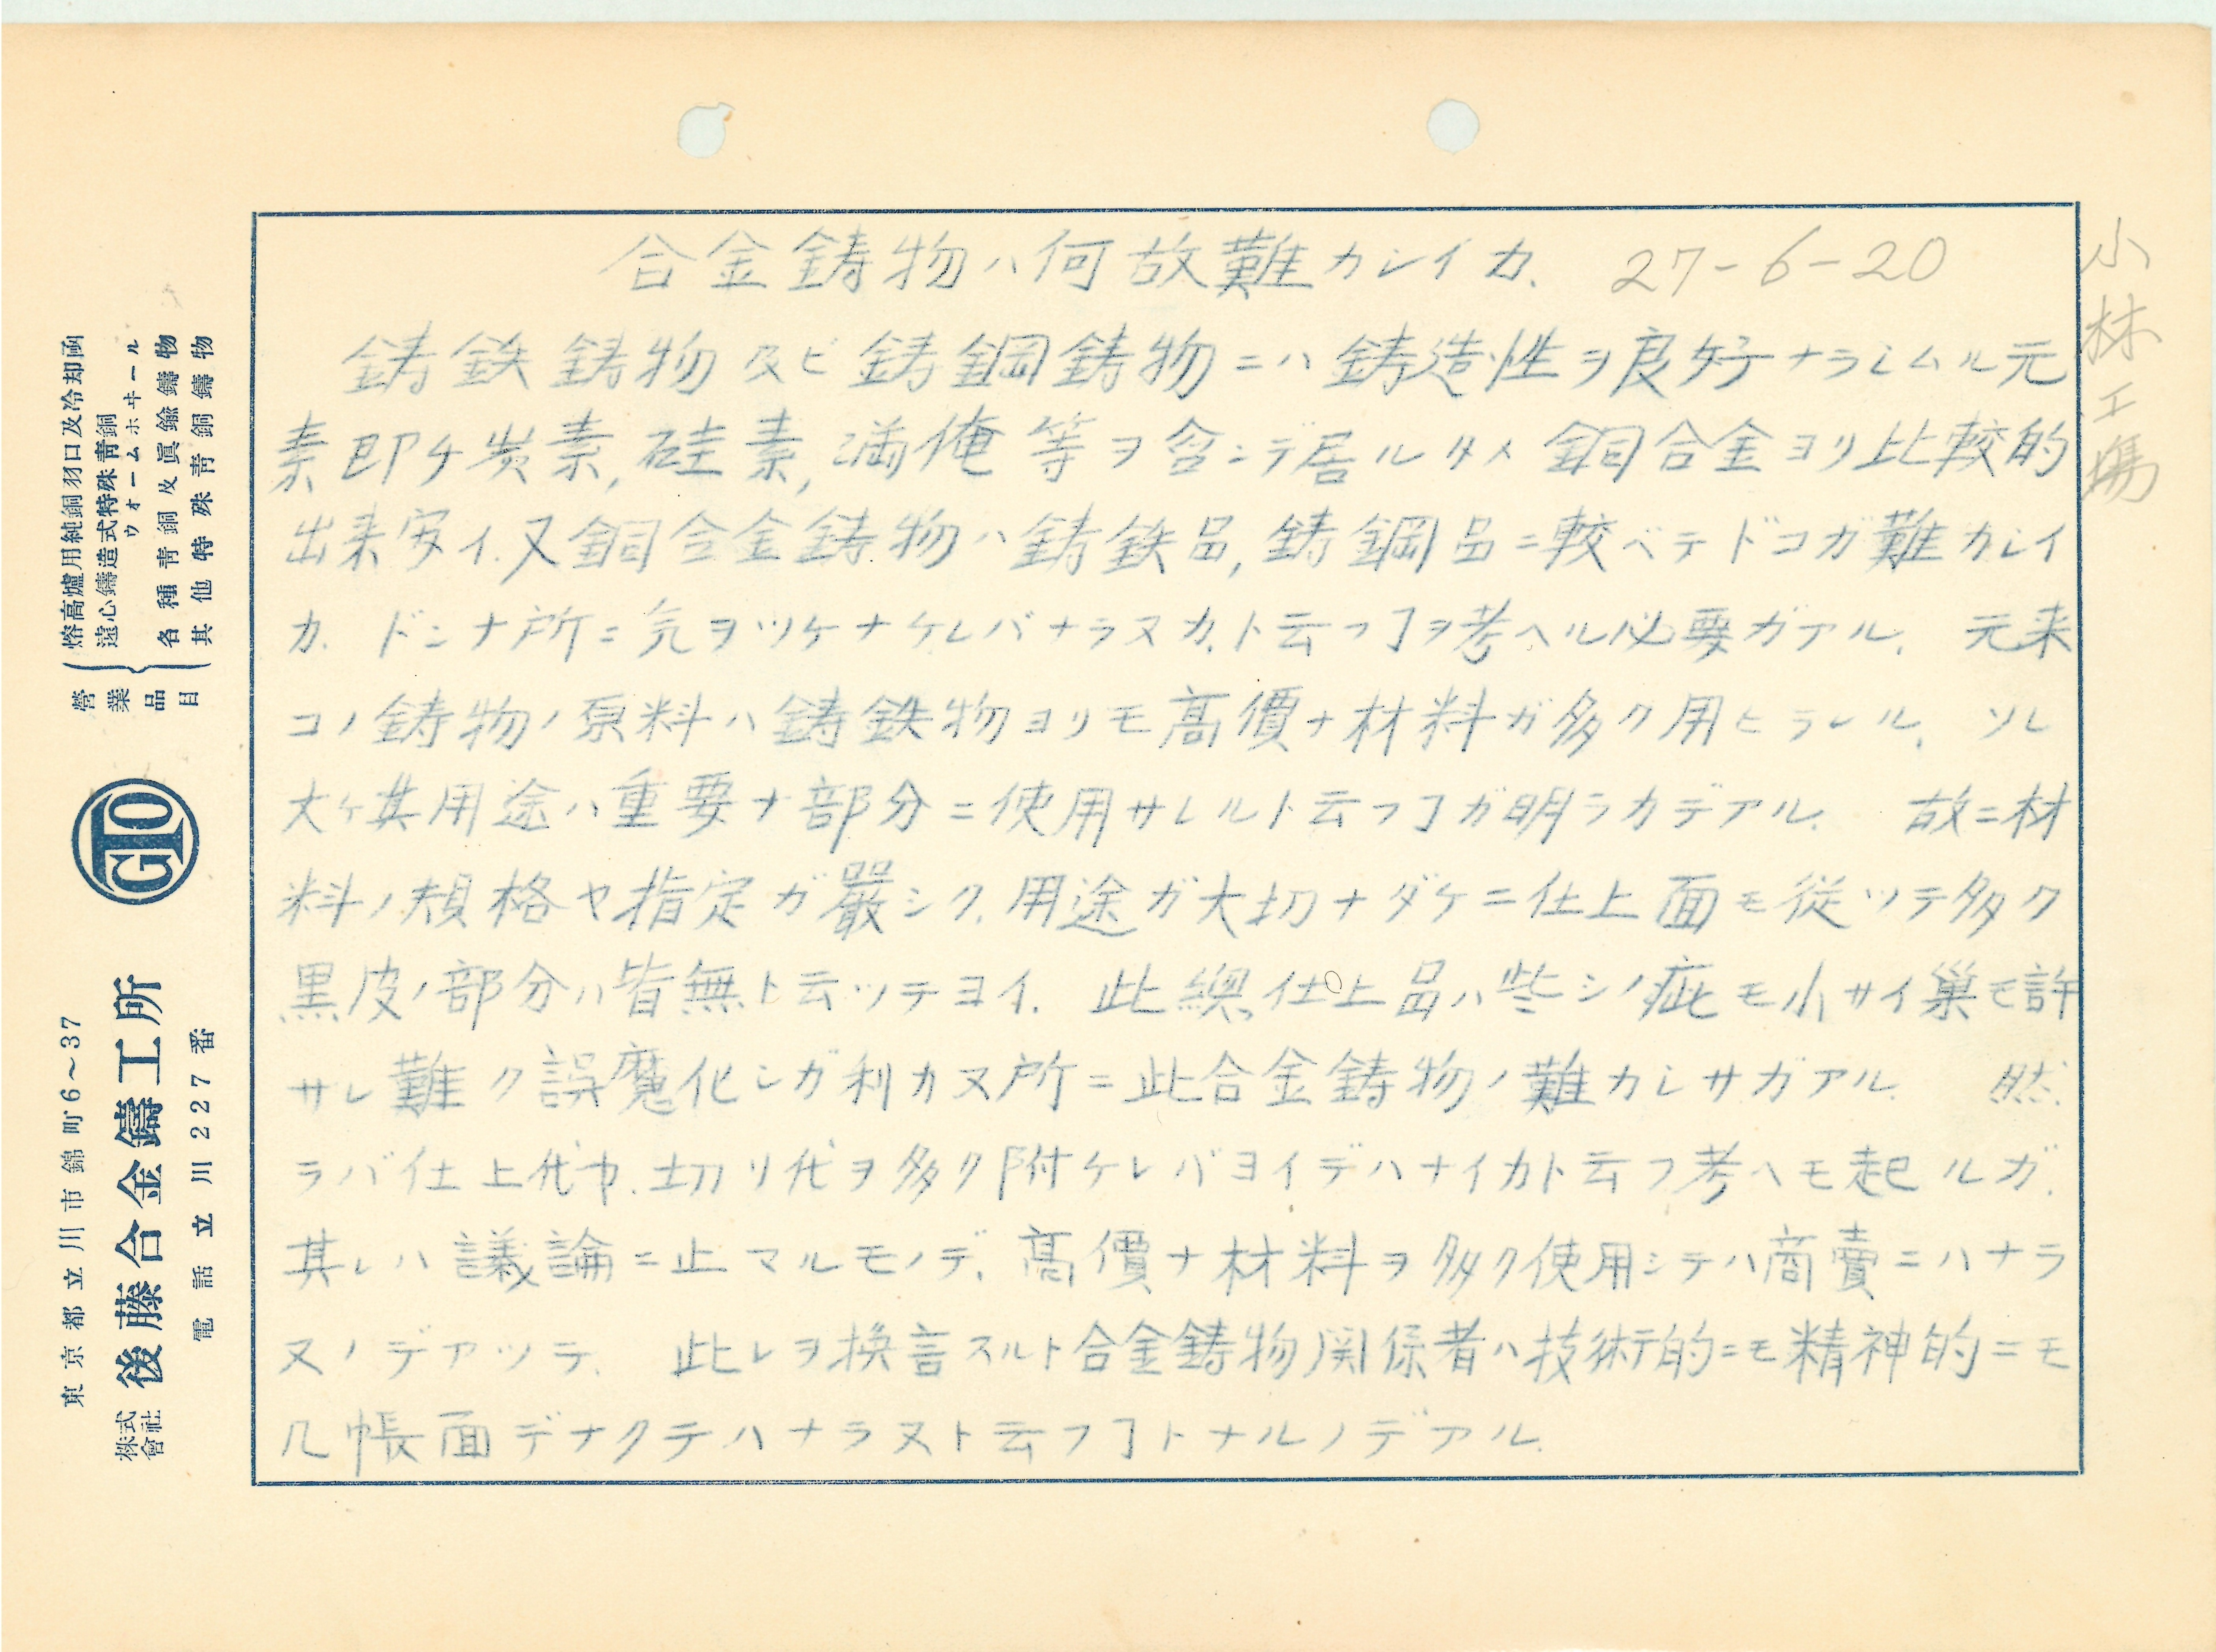 合金鋳物ハ何故難カシイカ. 27-6-20
小林工場
鋳鉄鋳物及ビ鋳鋼鋳物ニハ鋳造性ヲ良好ナラシムル元
素即チ炭素,硅素,満俺等ヲ含ンデ居ルタメ銅合金ヨリ比較的
出来安イ.又銅合金鋳物ハ鋳鉄品,鋳鋼品ニ較ベテドコガ難カシイ
カ.ドンナ所ニ気ヲツケナケレバナラヌカ.ト云フヿヲ考ヘル必要ガアル. 元来
コノ鋳物ノ原料ハ鋳鉄物ヨリモ高價ナ材料ガ多ク用ヒラレル. ソレ
大ケ其用途ハ重要ナ部分ニ使用サレルト云フヿガ明ラカデアル. 故ニ材
料ノ規格ヤ指定ガ嚴シク.用途ガ大切ナダケニ仕上面モ従ツテ多ク
黒皮ノ部分ハ皆無ト云ツテヨイ. 此總仕上品ハ些シノ疵モ小サイ巣モ許
サレ難ク誤魔化シガ利カヌ所ニ此合金鋳物ノ難カシサガアル. 然
ラバ仕上代ヤ.切リ代ヲ多ク附ケレバヨイデハナイカト云フ考ヘモ起ルガ.
其レハ議論ニ止マルモノデ.高價ナ材料ヲ多ク使用シテハ商賣ニハナラ
ヌノデアツテ. 此レヲ換言スルト合金鋳物関係者ハ技術的ニモ精神的ニモ
几帳面デナクテハナラヌト云フヿトナルノデアル.
營業品目
熔高爐用純銅羽口及冷却函
遠心鑄造式特殊青銅
ウォームホヰール
各種青銅及眞鍮鑄物
其他特殊青銅鑄物
GTO
東京都立川市錦町6～37
株式會社 後藤合金鑄工所
電話立川227番